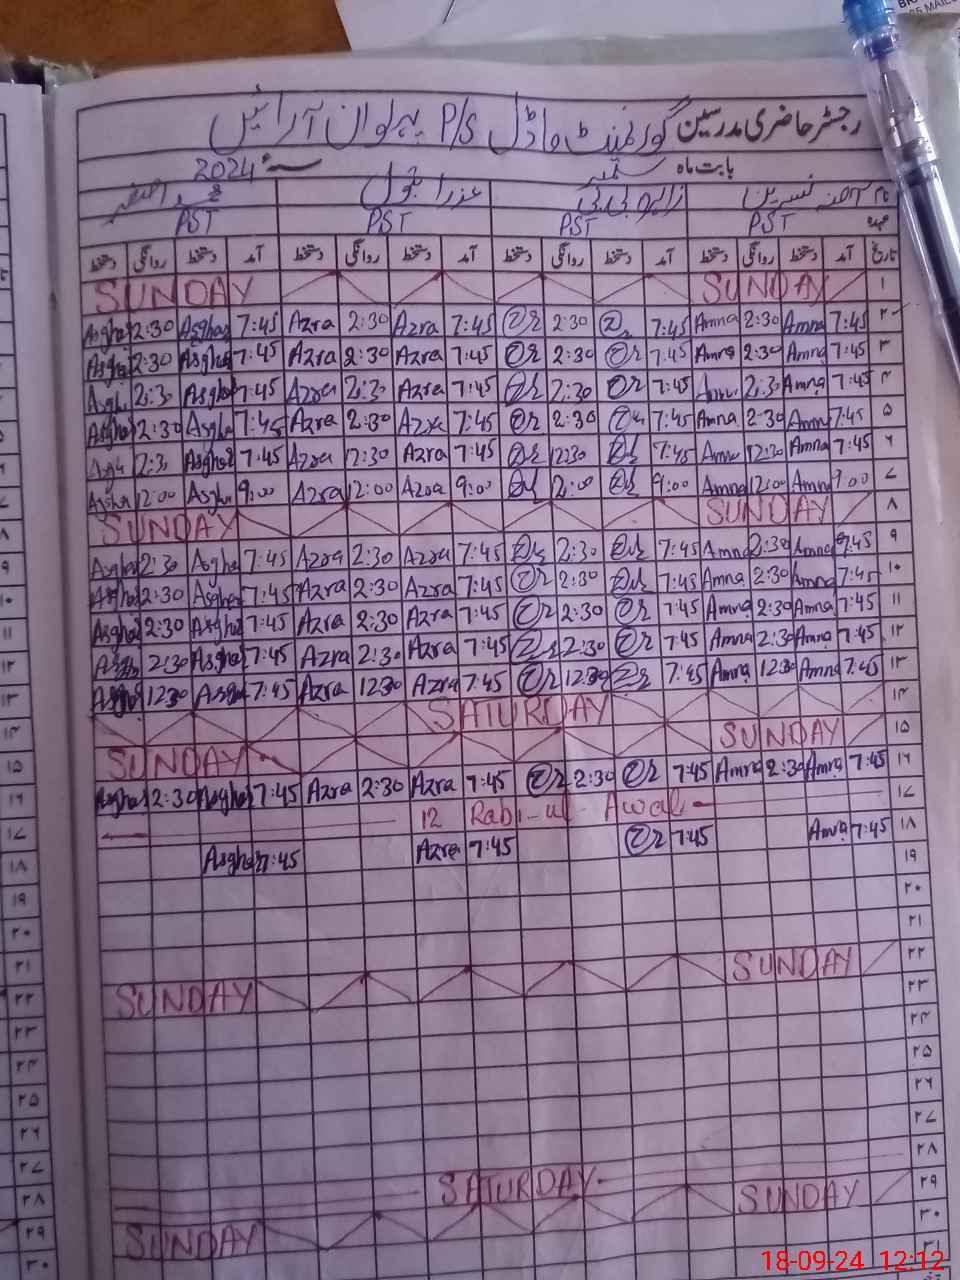 رجسٹر حاضری مدرسین گورنمنٹ ماڈل P/S پہلوان آرائیں
بابت ماہ ستمبر سنہ 2024ء
نام آمنہ نسرین زاہرہ بی بی عذرا بتول محمد اصغر
عہدہ PST PST PST PST
تاریخ آمد دستخط روانگی دستخط آمد دستخط روانگی دستخط آمد دستخط روانگی دستخط آمد دستخط روانگی دستخط
SUNDAY SUNDAY ۱
Asghar 2:30 Asghar 7:45 Azra 2:30 Azra 7:45 2:30 7:45 Amna 2:30 Amna 7:45 ۲
Asghar 2:30 Asghar 7:45 Azra 2:30 Azra 7:45 2:30 7:45 Amna 2:30 Amna 7:45 ۳
Asgh 2:30 Asghar 7:45 Azra 2:30 Azra 7:45 2:30 7:45 2:30 Amna 7:45 ۴
Asghar 2:30 Asgha 7:45 Azra 2:30 Azra 7:45 2:30 7:45 Amna 2:30 Amna 7:45 ۵
2:3 Asghar 7:45 Azra 12:30 Azra 7:45 12:30 7:45 Amna 12:30 Amna 7:45 ۶
Asghar 12:00 Asghar 9:00 Azra 12:00 Azra 9:00 12:00 9:00 Amna 12:00 Amna 9:00 ۷
SUNDAY SUNDAY ۸
Asghar 2:30 Asghar 7:45 Azra 2:30 Azra 7:45 2:30 7:45 Amna 2:30 Amna 7:45 ۹
Asghar 2:30 Asghar 7:45 Azra 2:30 Azra 7:45 2:30 7:45 Amna 2:30 Amna 7:45 ۱۰
Asghar 2:30 Asghar 7:45 Azra 2:30 Azra 7:45 2:30 7:45 Amna 2:30 Amna 7:45 ۱۱
Asghar 2:30 Asghar 7:45 Azra 2:30 Azra 7:45 2:30 7:45 Amna 2:30 Amna 7:45 ۱۲
Asghar 12:30 Asghar 7:45 Azra 12:30 Azra 7:45 12:30 7:45 Amna 12:30 Amna 7:45 ۱۳
SATURDAY ۱۴
SUNDAY SUNDAY ۱۵
Asghar 2:30 Asghar 7:45 Azra 2:30 Azra 7:45 2:30 7:45 Amna 2:30 Amna 7:45 ۱۶
12 Rabi-ul Awal ۱۷
Asghar 7:45 Azra 7:45 7:45 Amna 7:45 ۱۸
۱۹
۲۰
۲۱
SUNDAY SUNDAY ۲۲
۲۳
۲۴
۲۵
۲۶
۲۷
SATURDAY ۲۸
SUNDAY SUNDAY ۲۹
۳۰
۳۱
18-09-24 12:12